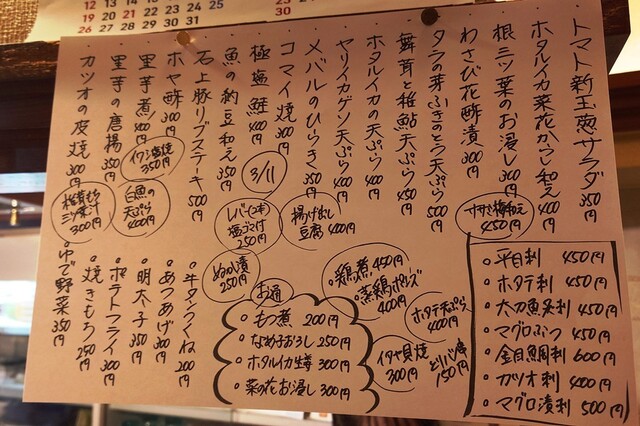 12 13 14 15 16 17
19 20 21 22 23 24
26 27 28 29 30 31
23
30
トマト新玉葱サラダ 350円
ホタルイカ菜花からし和え 400円
根三ツ葉のお浸し 300円
わさび花酢漬 300円
タラの芽ふきのとう天ぷら 500円
舞茸と稚鮎天ぷら 450円
ホタルイカの天ぷら 400円
ヤリイカゲソ天ぷら 400円
メバルのひらき 350円
コマイ焼 300円
極塩鮭 400円
魚の納豆和え 350円
石上豚リブステーキ 500円
ホヤ酢 300円
里芋煮 400円
里芋の唐揚 350円
カツオの皮焼 300円
3/11
イワシ塩焼 350円
白魚の天ぷら 400円
300円
塩ごま付 250円
揚げ出し豆腐 400円
ぬか漬 250円
鶏煮 450円
蒸鶏ポン酢 400円
ホタテ天ぷら 400円
イタヤ貝焼 300円
とりハツ焼 150円
450円
・牛タンつくね 200円
・あつあげ 300円
・明太子 350円
・ポテトフライ 300円
・焼きもち 250円
・ゆで野菜 350円
お通
・もつ煮 200円
・なめたけおろし 250円
・ホタルイカ生姜 300円
・菜の花お浸し 300円
・平目刺 450円
・ホタテ刺 450円
・太刀魚炙刺 450円
・マグロぶつ 450円
・金目鯛刺 600円
・カツオ刺 400円
・マグロ漬刺 500円